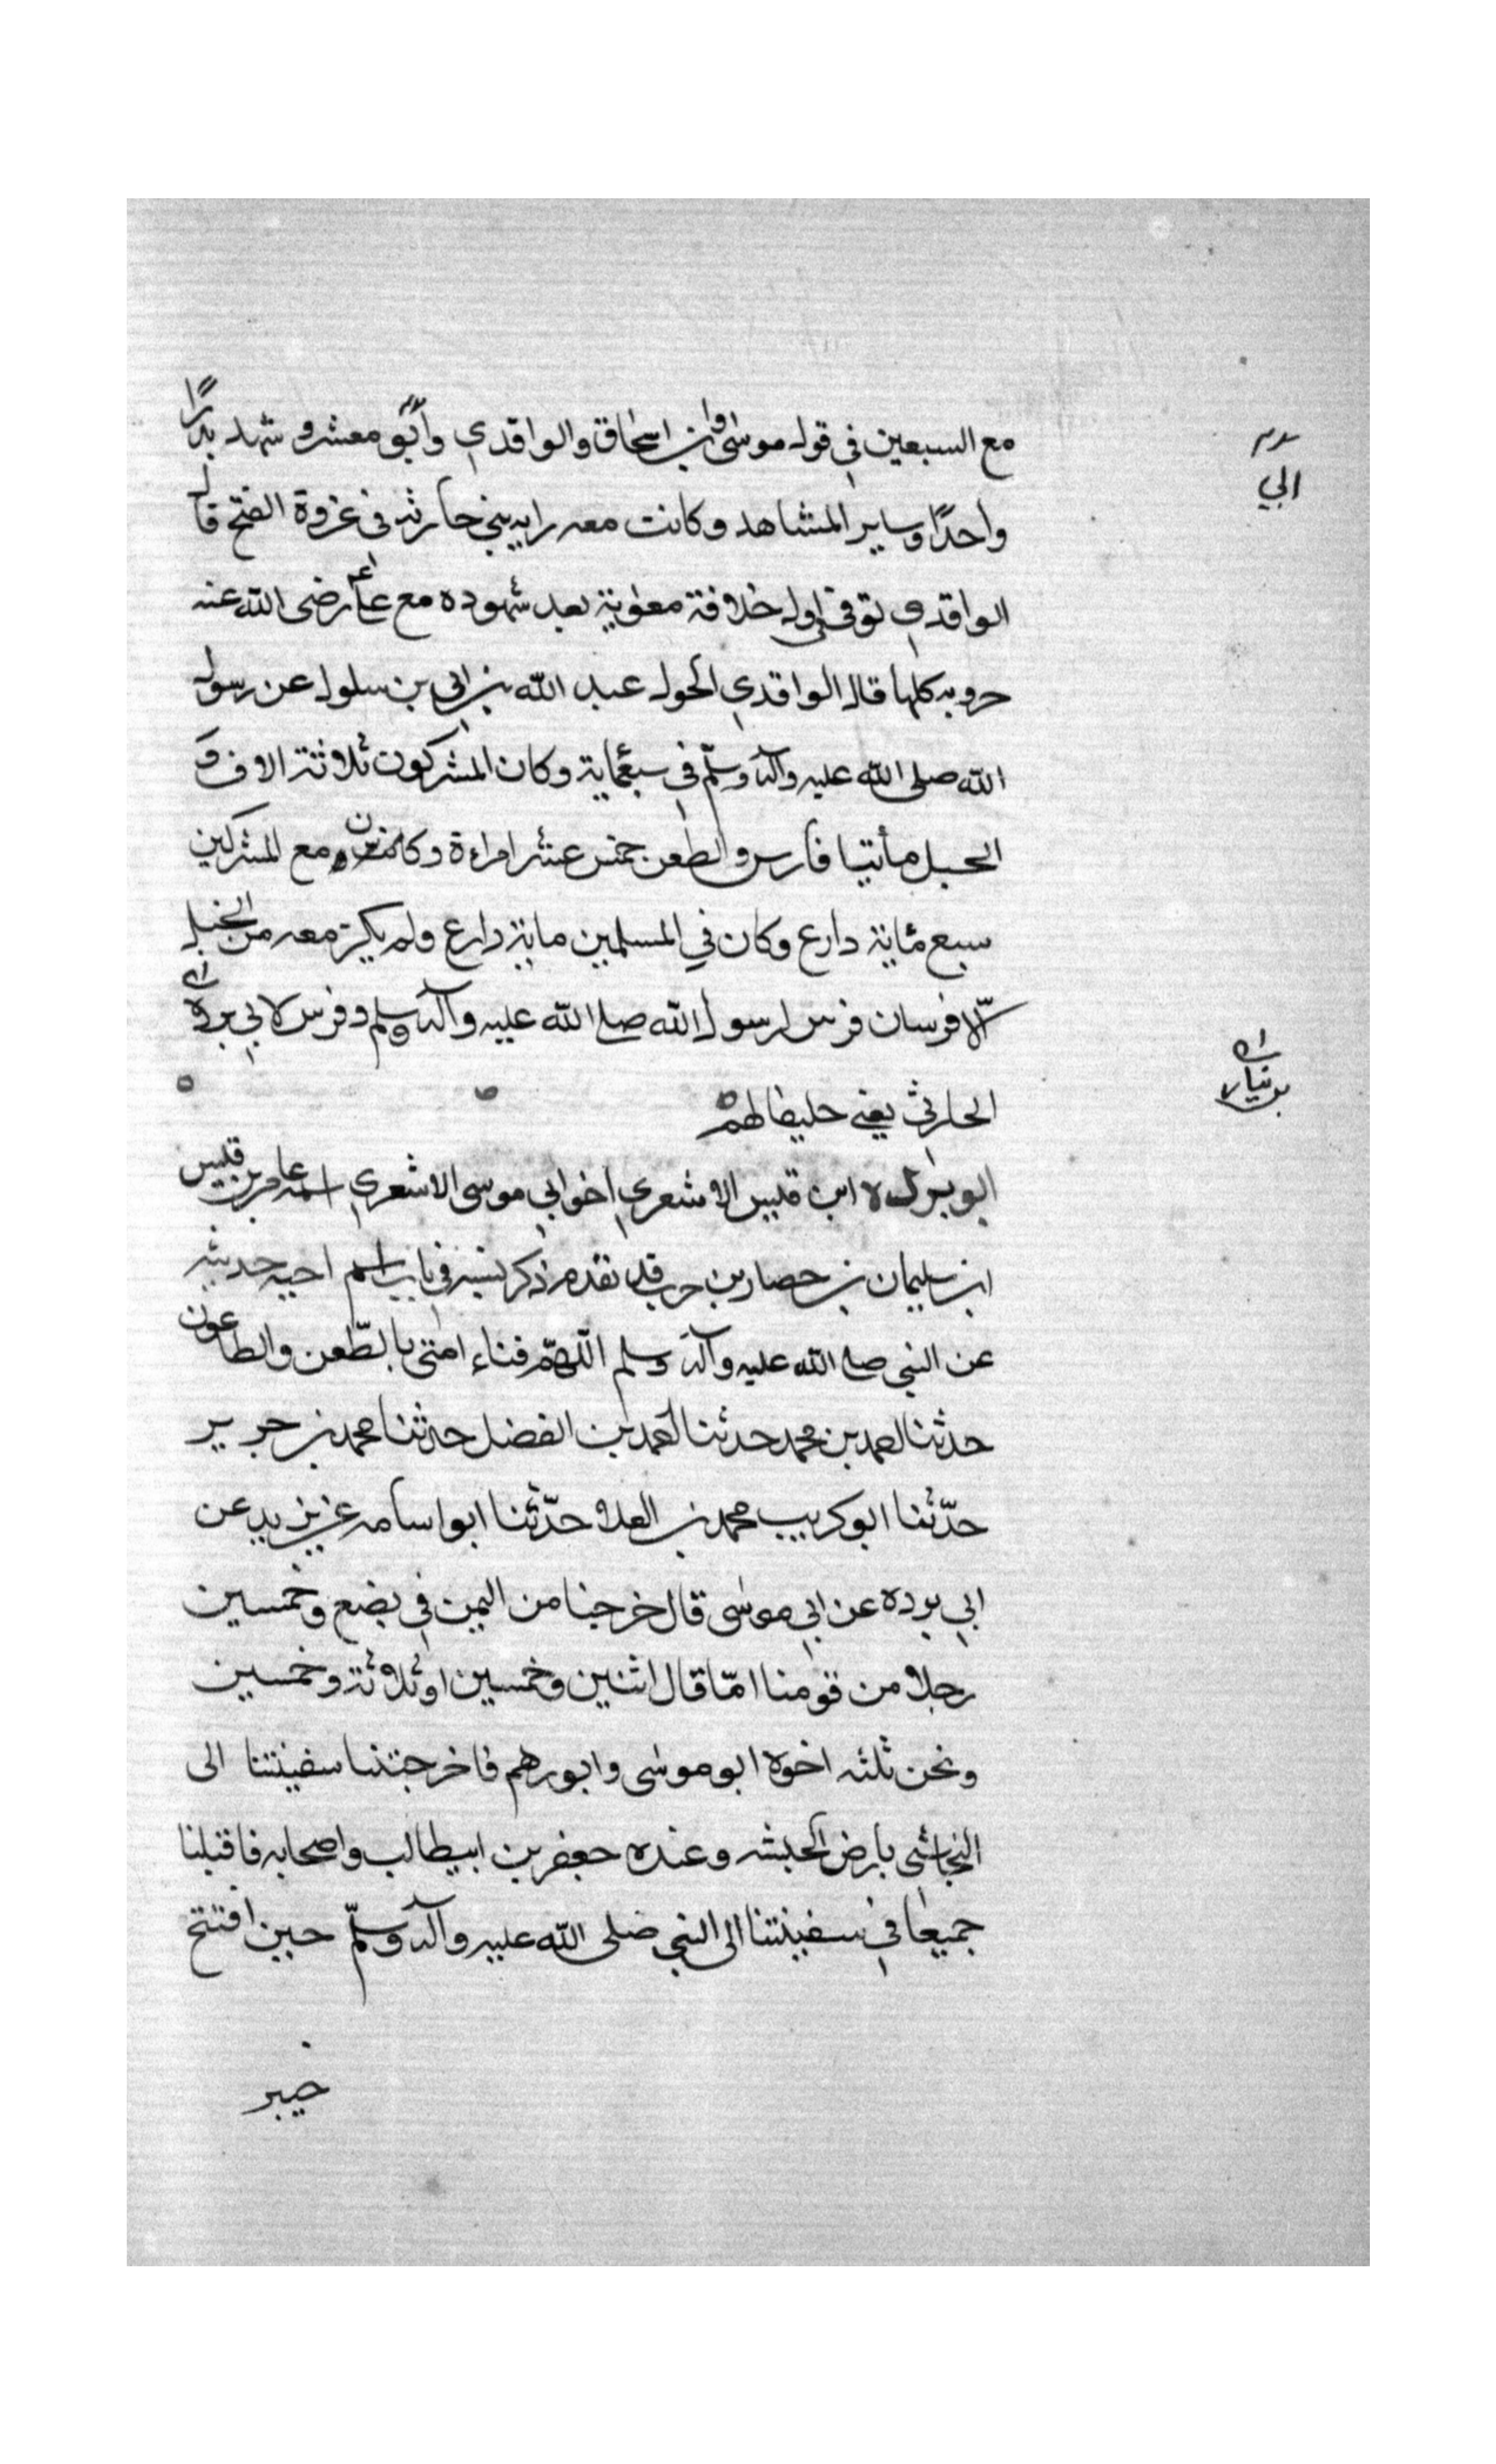 مع السبعين في قول موسى وابن اسحاق والواقدي وأبو معشر و شهد بدرًا
الي
واحدًا وساير المشاهد وكانت معه راية بني حارثه في غزوة الفتح قال
الواقدي توفي اول خلافة معوية بعد شهوده مع علي رضى الله عنه
حروبه كلها قال الواقدي الحول عبد الله بن ابي بن سلول عن رسول
الله صلى الله عليه وآله وسلّم في سبعماية وكان المشركون ثلاثة الاف و
الحبل مأتيا فارس والطعن خمس عشر امراءة وكان مع المشركين
سبع مئاية دارع وكان في المسلمين ماية دارع ولم يكن معه من الخيل
الّا فرسان فرس لرسول الله صلى الله عليه وآله وسلم وفرس لابي برده
بن نيار
الحارثي يعني حليفا لهم
ابو برده ابن قيس الاشعري اخو ابي موسى الاشعري اسمه عامر بن قيس
ابن سليمان بن حصار بن حرب قد تقدم ذكر نسبه في باب اسم اخيه حديثه
عن النبي صلى الله عليه وآله وسلم اللّهمّ فناء امتى بالطّعن والطاعون
حدثنا احمد بن محمد حدثنا احمد بن الفضل حدثنا محمد بن جرير
حدّثنا ابو كريب محمد بن العلا حدّثنا ابو اسامه عن يزيد عن
ابي برده عن ابي موسى قال خرجنا من اليمن في بضع وخمسين
رجلا من قومنا امّا قال اثنين وخمسين او ثلاثة وخمسين
ونحن ثلثه اخوه ابو موسى وابو رهم فاخرجتنا سفينتنا الى
النجاشى بارض الحبشه وعنده جعفر بن ابيطالب واصحابه فاقبلنا
جميعا في سفينتنا الى النبي صلى الله عليه وآله وسلّم حين افتتح
خيبر